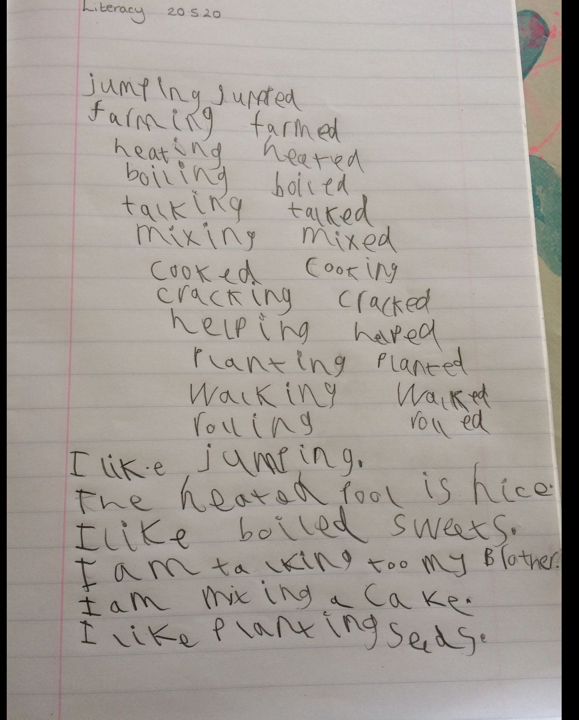 Literacy 20.5.20
jumping jumped
farming farmed
heating heated
boiling boiled
talking talked
mixing mixed
cooked cooking
cracking cracked
helping haped
Planting Planted
Walking Walked
rolling rolled
I like jumping.
The heated Pool is nice.
I like boiled sweets.
I am talking too my Blother.
I am mixing a Cake.
I like Planting Seeds.